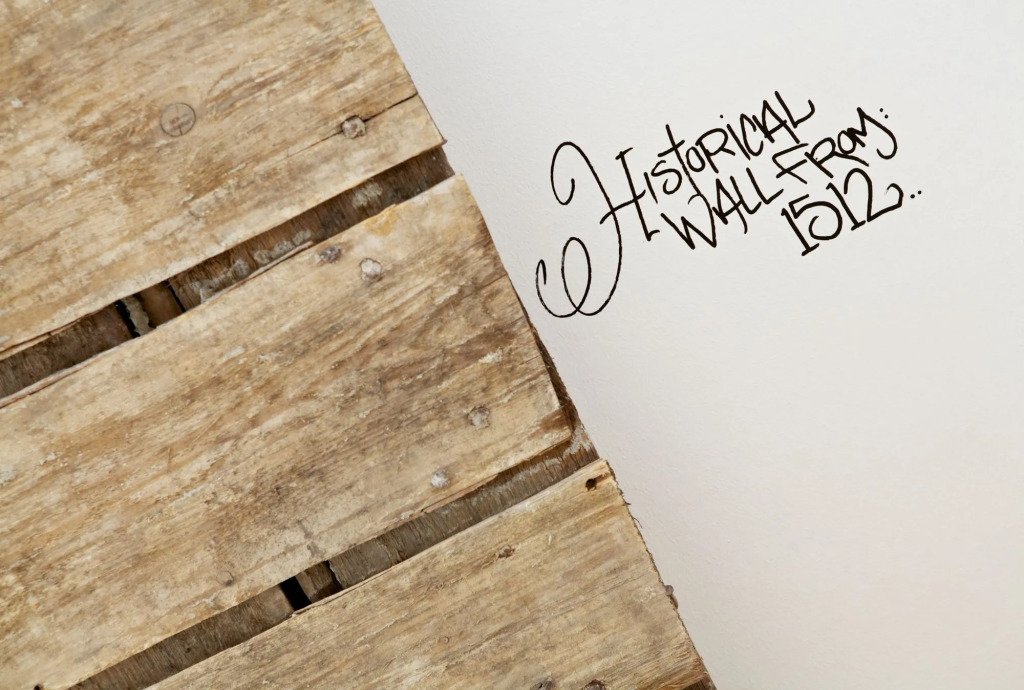 Historicial
Wall From:
1512..